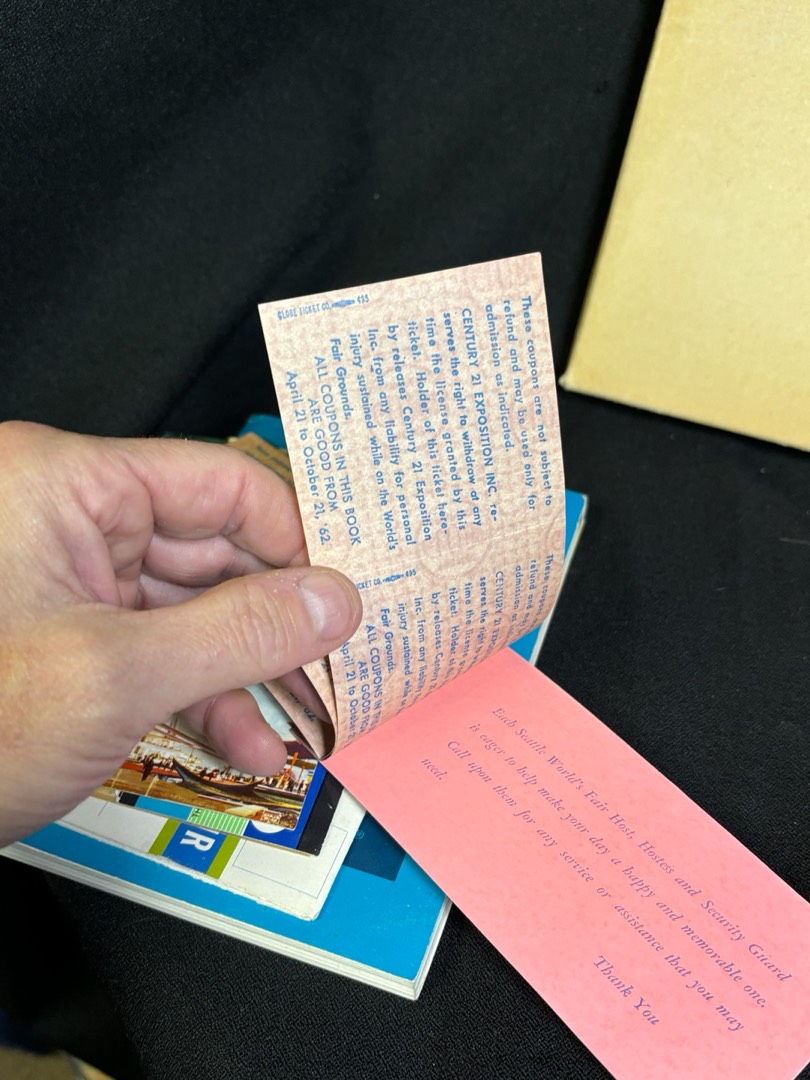 These coupons are not subject to
refund and may be used only for
admission as indicated.
CENTURY 21 EXPOSITION INC. re-
serves the right to withdraw at any
time the license granted by this
ticket. Holder of this ticket here-
by releases Century 21 Exposition
Inc. from any liability for personal
injury sustained while on the World's
Fair Grounds.
ALL COUPONS IN THIS BOOK
ARE GOOD FROM
April 21 to October 21, '62.
GLOBE TICKET CO. 495
These
refund and
admission as
CENTURY 21
serves the right
time the license
ticket. Holder
by releases Century
Inc. from any liability
injury sustained while
Fair Grounds.
ALL COUPONS IN
ARE GOOD
April 21 to October
TICKET CO. 495
Each Seattle World's Fair Host, Hostess and Security Guard
is eager to help make your day a happy and memorable one.
Call upon them for any service or assistance that you may
need.
Thank You
R